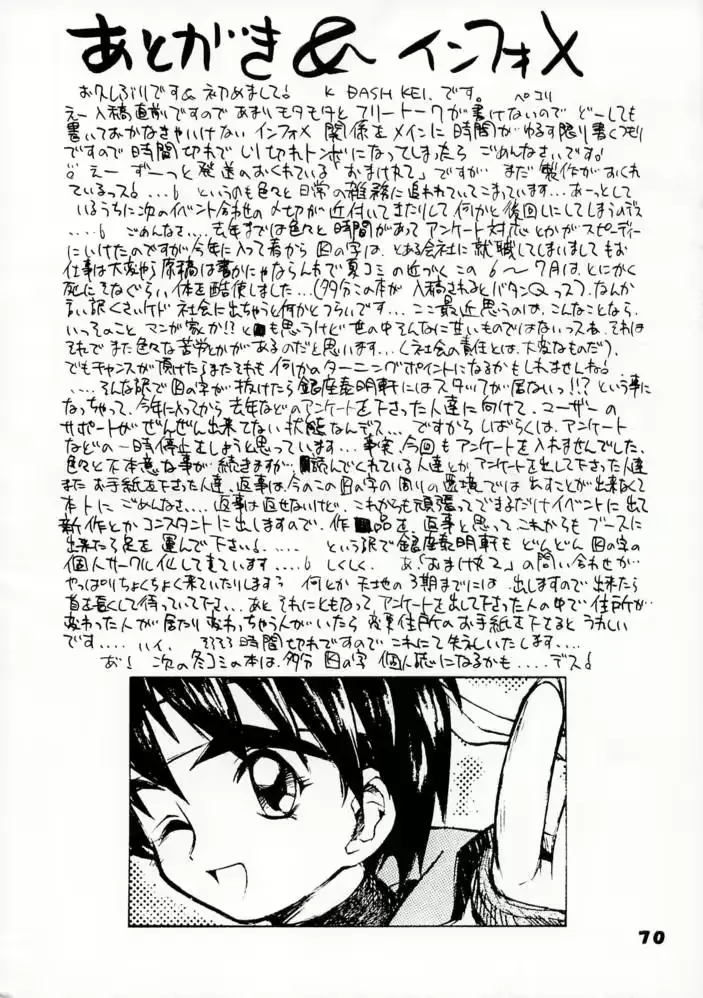 あとがき & インフォメ
お久しぶりです&初めまして! K DASH KEI.です。 ペコリ
えー入稿直前ですので あまりモタモタと フリートークが書けないので どーしても
書いておかなきゃいけない インフォメ 関係をメインに 時間が ゆるす限り書くつもり
ですので 時間切れで しり切れトンボになってしまったら ごめんなさいです!
えー ずーっと発送のおくれている「おまけ丸て」ですが まだ製作がおくれ
ているっス!...6 というのも色々と日常の雑務に追われていてこまっています...あーっとして
いるうちに次のイベント合わせの〆切が近付いてきたりして何かと後回しにしてしまうデス
....6 ごめんなさ...去年までは色々と時間があってアンケート対応とかがスピーディー
にいけたのですが今年に入って春から 図の字は、とある会社に就職してしまいましてもお
仕事は大変やら原稿は書かにゃならんわで夏コミの近づくこの6〜7月は、とにかく
死にそなぐらい体を酷使しました...(多分この本が入稿されるとバタンQっス)、なんか
言い訳くさいけど 社会に出ちゃうと何かとつらいです...ここ最近思うのは、こんなことなら、
いっそのこと マンガ家か!?とも思うけど世の中そんなに甘いものではないっスね、それは
それでまた色々な苦労とかがあるのだと思います...(社会の責任とは、大変なものだ)、
でもチャンスが頂けたらまたそれも何かのターニングポイントになるかもしれませんね!
....そんな訳で図の字が抜けたら銀座泰明軒にはスタッフが居ないっ!!?という事に
なっちゃって、今年に入ってから去年などのアンケートを下さった人達に向けて、ユーザーの
サポートがぜんぜん出来てない状態なんデス...ですからしばらくは、アンケート
などの一時停止をしようと思っています...事実、今回もアンケートを入れませんでした、
色々と不本意な事が続きますが、読んでくれている人達とか、アンケートを出して下さった人達
またお手紙を下さった人達、返事は、今のこの図の字の周りの環境では出すことが出来なくて
本トにごめんなさ...返事は返せないけど、これからも頑張ってできるだけイベントに出て
新作とかコンスタントに出しますので、作品を、返事と思ってこれからもブースに
出来たら足を運んで下さい!..... という訳で銀座泰明軒もどんどん図の字の
個人サークル化して来ています....6 しくしく、あ「おまけ丸て」の問い合わせが
やっぱりちょくちょく来ていたりします? 何とか天地の3期までには、出しますので出来たら
首を長くして待っていて下さ...あと、それにともなってアンケートを出して下さった人の中で住所が
変わった人が居たり変わっちゃう人がいたら変更住所のお手紙を下さるとうれしい
です.... ハイ、そろそろ時間切れですのでこれにて失礼いたします....
あ! 次の冬コミの本は、多分 図の字 個人誌になるかも....デス!
70